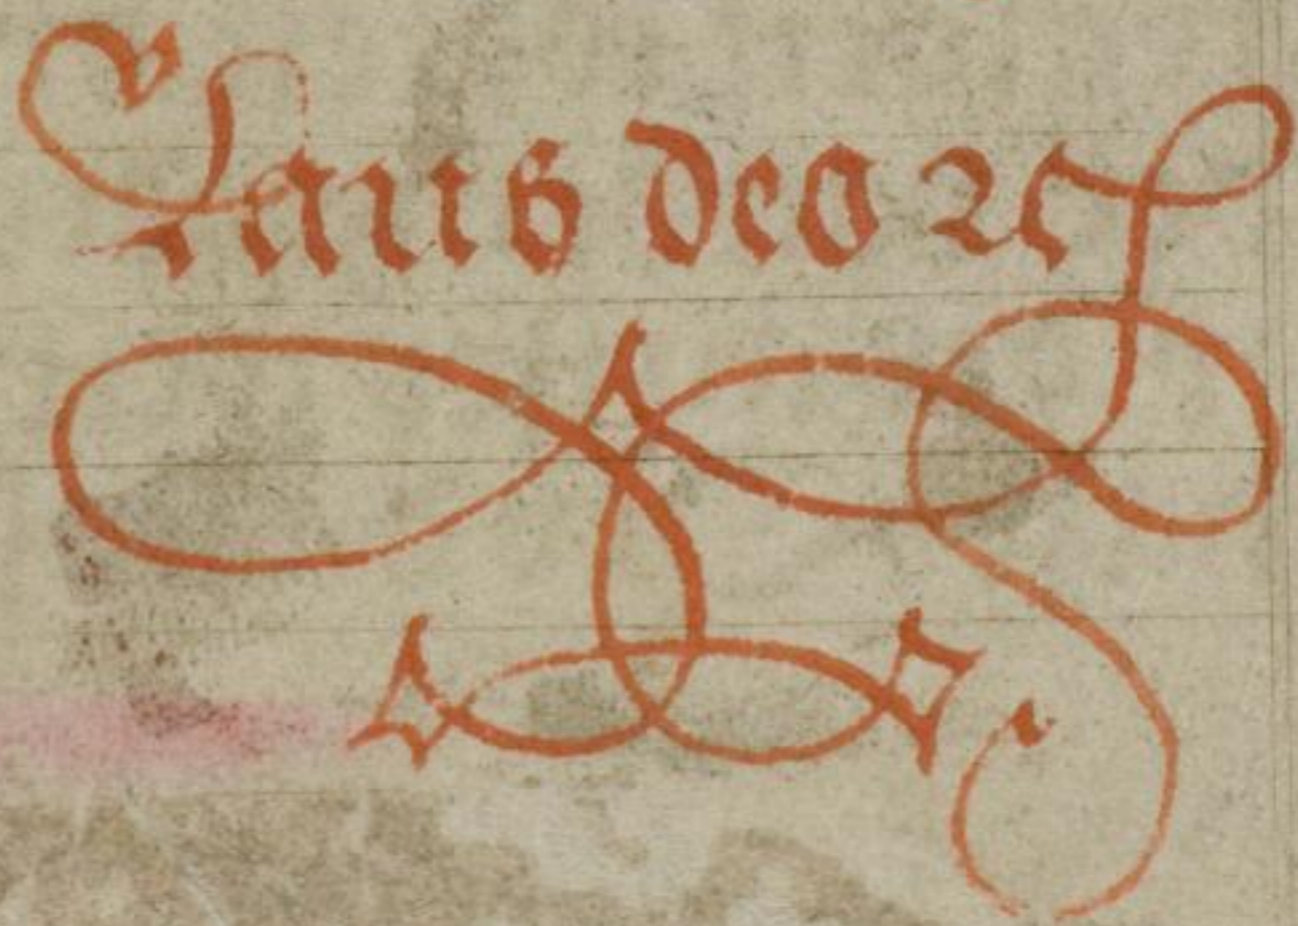 Laus deo ꝛc